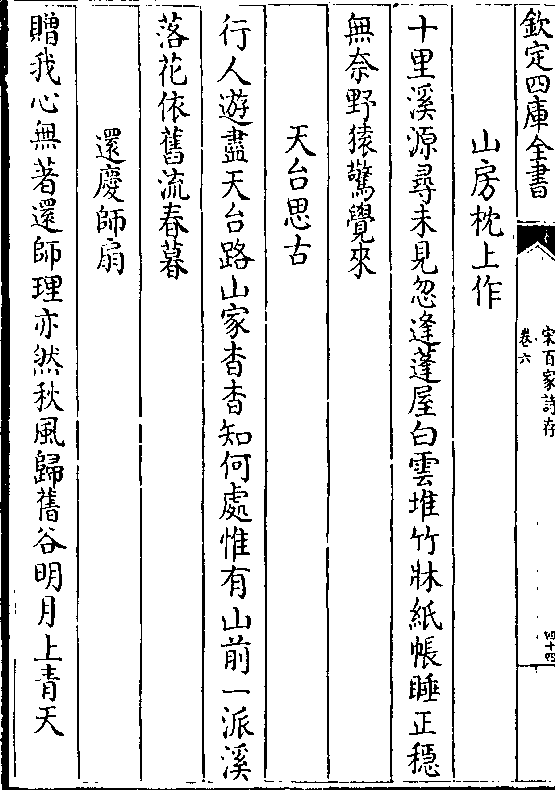 欽定四庫全書
宋百家詩存
卷六
四十四
山房枕上作
十里溪源尋未見忽逢蓬屋白雲堆竹牀紙帳睡正穩
無奈野猿驚覺來
天台思古
行人遊盡天台路山家杳杳知何處惟有山前一派溪
落花依舊流春暮
還慶師扇
贈我心無著還師理亦然秋風歸舊谷明月上青天